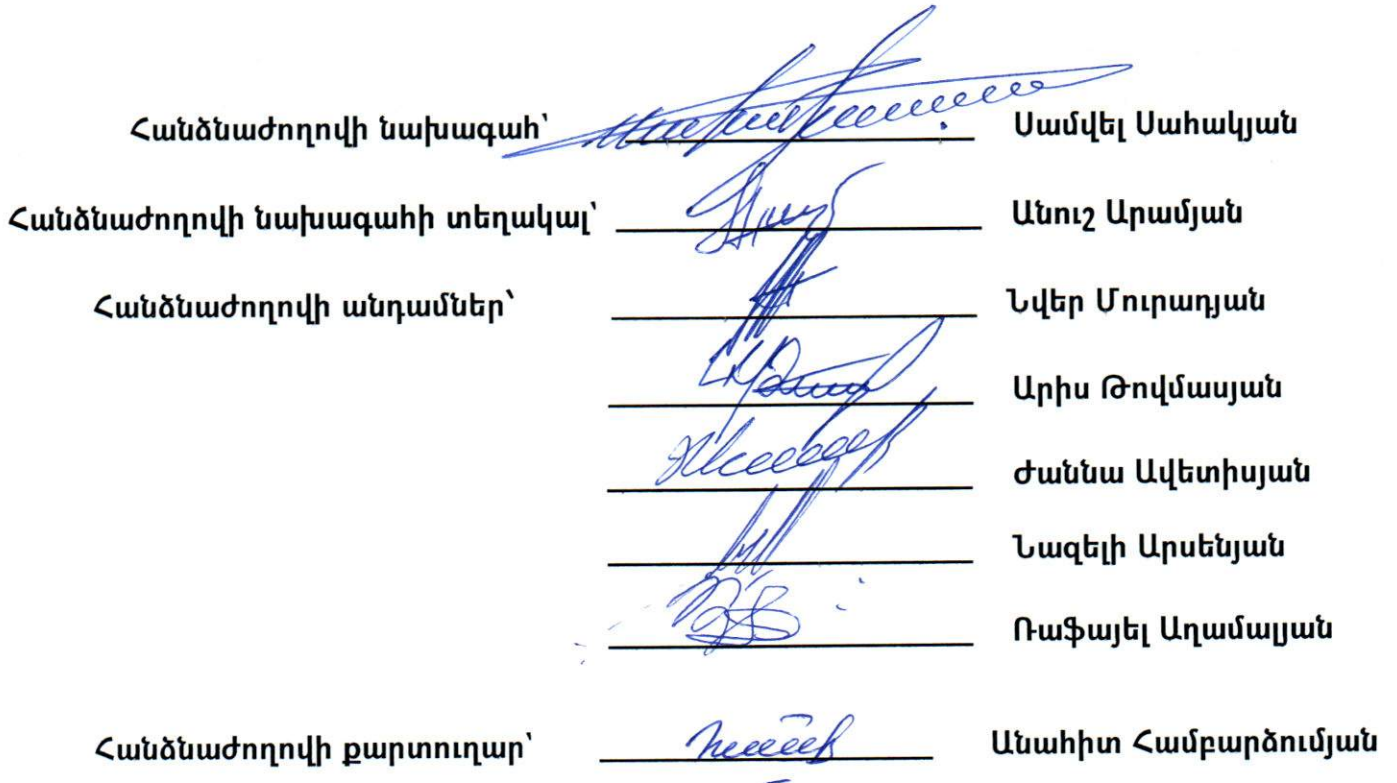 Հանձնաժողովի նախագահ՝ Սամվել Սահակյան
Հանձնաժողովի նախագահի տեղակալ՝ Անուշ Արամյան
Հանձնաժողովի անդամներ՝ Նվեր Մուրադյան
Արիս Թովմասյան
Ժաննա Ավետիսյան
Նազելի Արսենյան
Ռաֆայել Աղամալյան
Հանձնաժողովի քարտուղար՝ Անահիտ Համբարձումյան